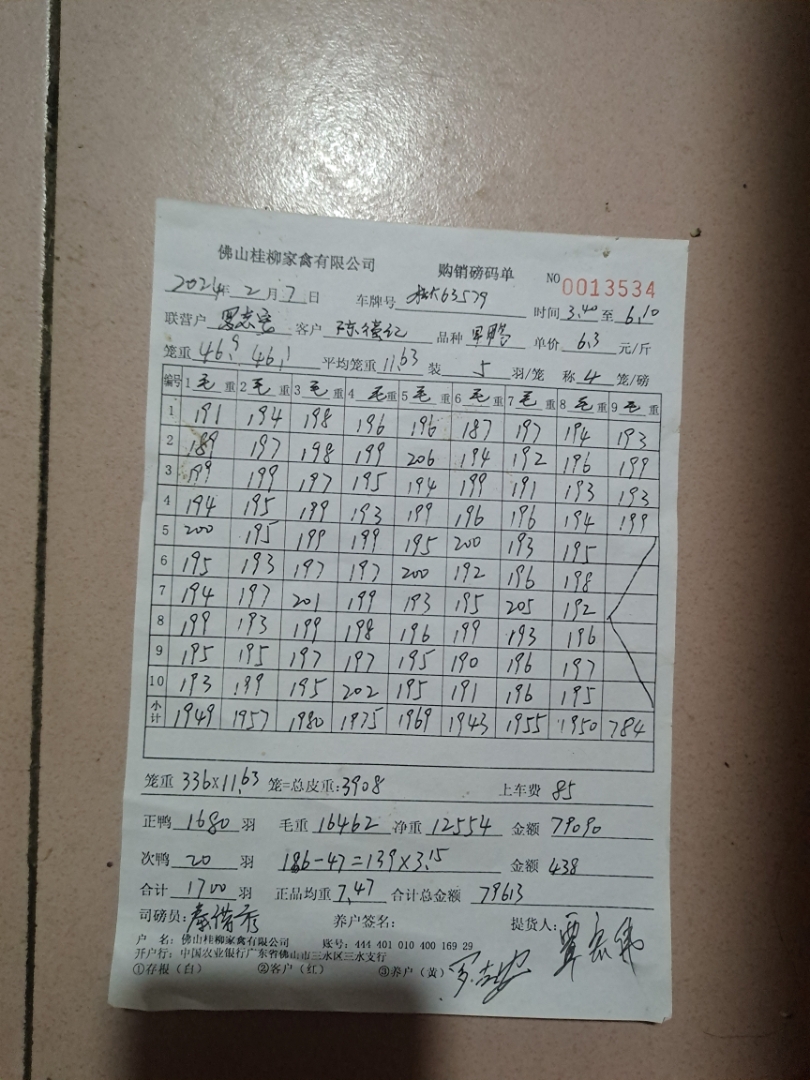 佛山桂柳家禽有限公司 购销磅码单 NO 0013534
2024年 2月 7日 车牌号 63579 时间 3.40 至 6.10
联营户 客户 陈德纪 品种 单价 6.3 元/斤
笼重 46.9 46.1 平均笼重 11.63 装 5 羽/笼 称 4 笼/磅
编号 1 毛 重 2 毛 重 3 毛 重 4 毛 重 5 毛 重 6 毛 重 7 毛 重 8 毛 重 9 毛 重
1 191 194 198 196 196 187 197 194 193
2 189 197 198 199 206 194 192 196 199
3 199 199 197 195 194 199 191 193 193
4 194 195 199 193 199 196 196 194 199
5 200 195 199 199 195 200 193 195
6 195 193 197 197 200 192 196 198
7 194 197 201 199 193 195 205 192
8 199 193 199 198 196 199 193 196
9 195 195 197 197 195 190 196 197
10 193 199 195 202 195 191 196 195
小计 1949 1957 1980 1975 1969 1943 1955 1950 784
笼重 336×11.63 笼=总皮重:3908 上车费 85
正鸭 1680 羽 毛重 16462 净重 12554 金额 79090
次鸭 20 羽 186-47=139×3.15 金额 438
合计 1700 羽 正品均重 7.47 合计总金额 79613
司磅员: 养户签名: 提货人:
户 名: 佛山桂柳家禽有限公司 账号: 444 401 010 400 169 29
开户行: 中国农业银行广东省佛山市三水区三水支行
①存根(白) ②客户(红) ③养户(黄)